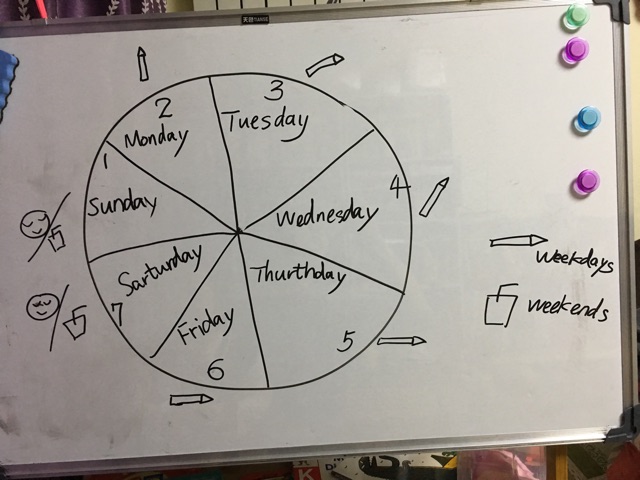 天世 TIANSE
2
Monday
3
Tuesday
1
Sunday
4
Wednesday
Sarturday
7
Thurthday
5
Friday
6
weekdays
weekends
K